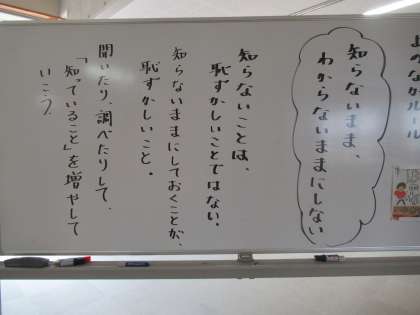 よのなかルール
知らないまま、
わからないままにしない
知らないことは、
恥ずかしいことではない。
知らないままにしておくことが、
恥ずかしいこと。
聞いたり、調べたりして、
「知っていること」を増やして
いこう